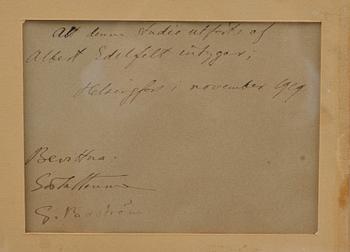 Att denna studie utförts af
Albert Edelfelt intygar;
Helsingfors i november 1919
Bevittna: